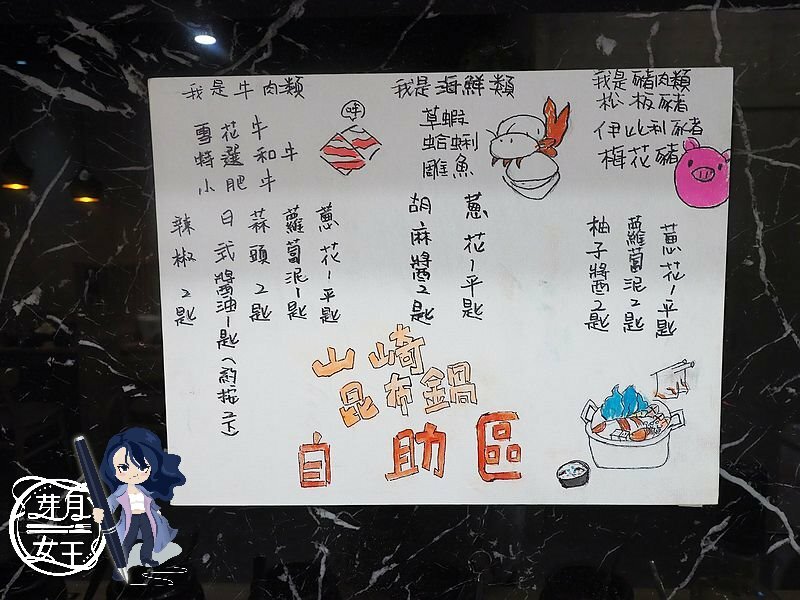 我是牛肉類
雪花牛
特選和牛
小肥牛
哞
蔥花1平匙
蘿蔔泥1匙
蒜頭2匙
日式醬油1匙(約按2下)
辣椒2匙
我是海鮮類
草蝦
蛤蜊
雕魚
蔥花1平匙
胡麻醬2匙
我是豬肉類
松板豬
伊比利豬
梅花豬
蔥花1平匙
蘿蔔泥2匙
柚子醬2匙
山崎
昆布鍋
自助區
芽月
女王